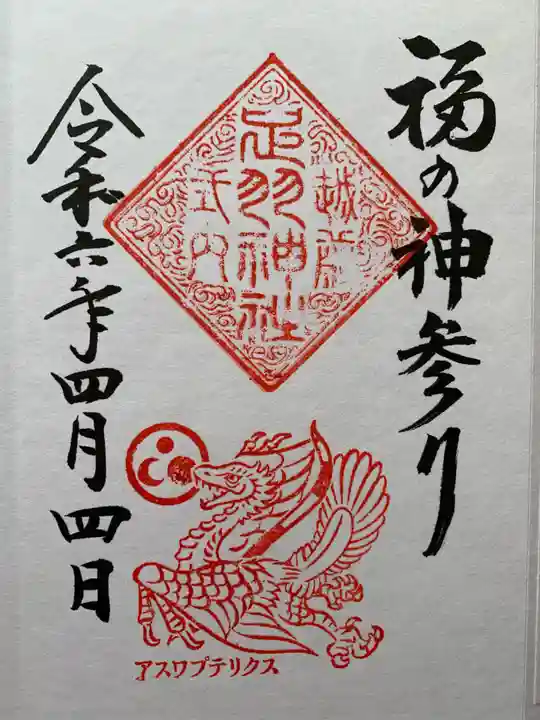 福の神参り
越前
足羽神社
式内
アスワプテリクス
令和六年四月四日